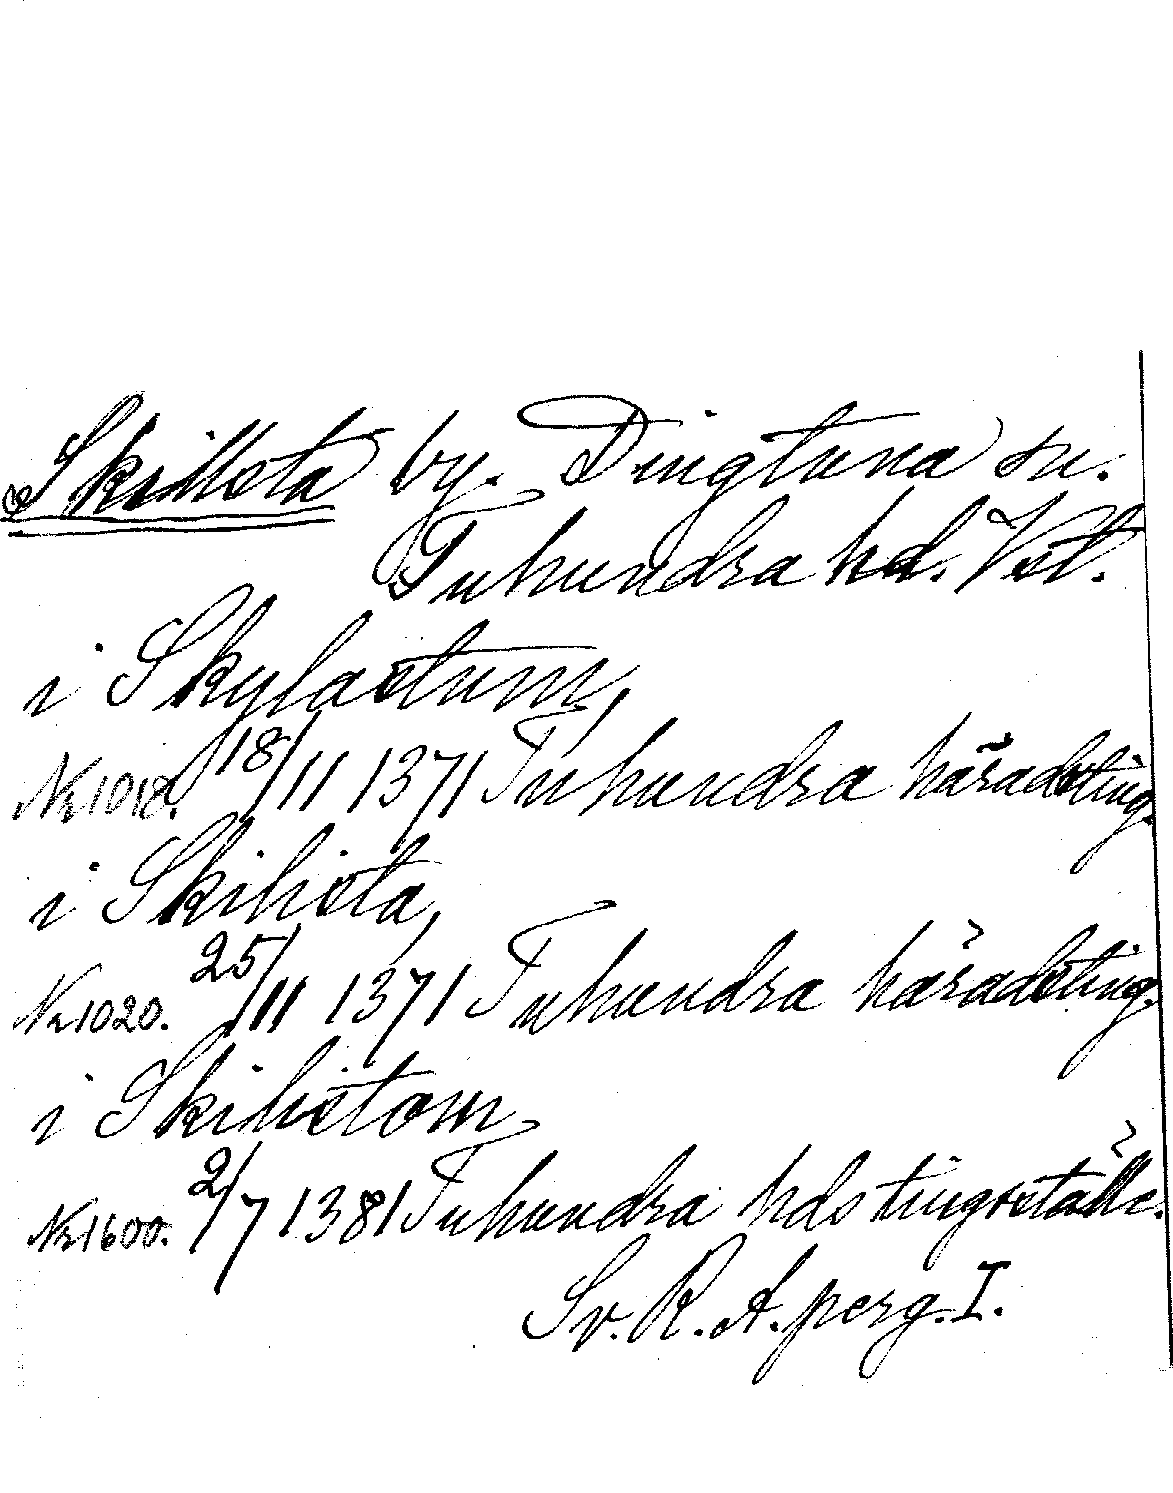 Skillsta by. Dingtuna sn.
Tuhundra hd. Vstl.
i Skylastum,
Nr 1018. 18/11 1371 Tuhundra häradsting.
i Skilista,
Nr 1020. 25/11 1371 Tuhundra häradsting.
i Skilistom
Nr 1600. 2/7 1381 Tuhundra hds tingsställe.
Sv. R. A. perg. I.